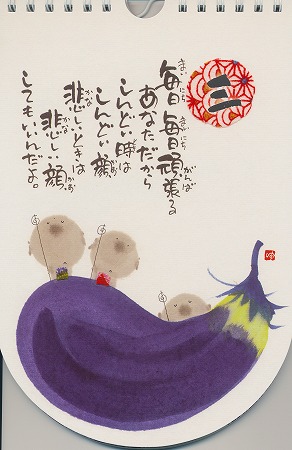 三
毎日毎日頑張る
まいにちまいにちがんば
あなただから
しんどい時は
しんどい顔
かお
悲しいときは
かな
悲しい顔
かなかお
してもいいんだよ。